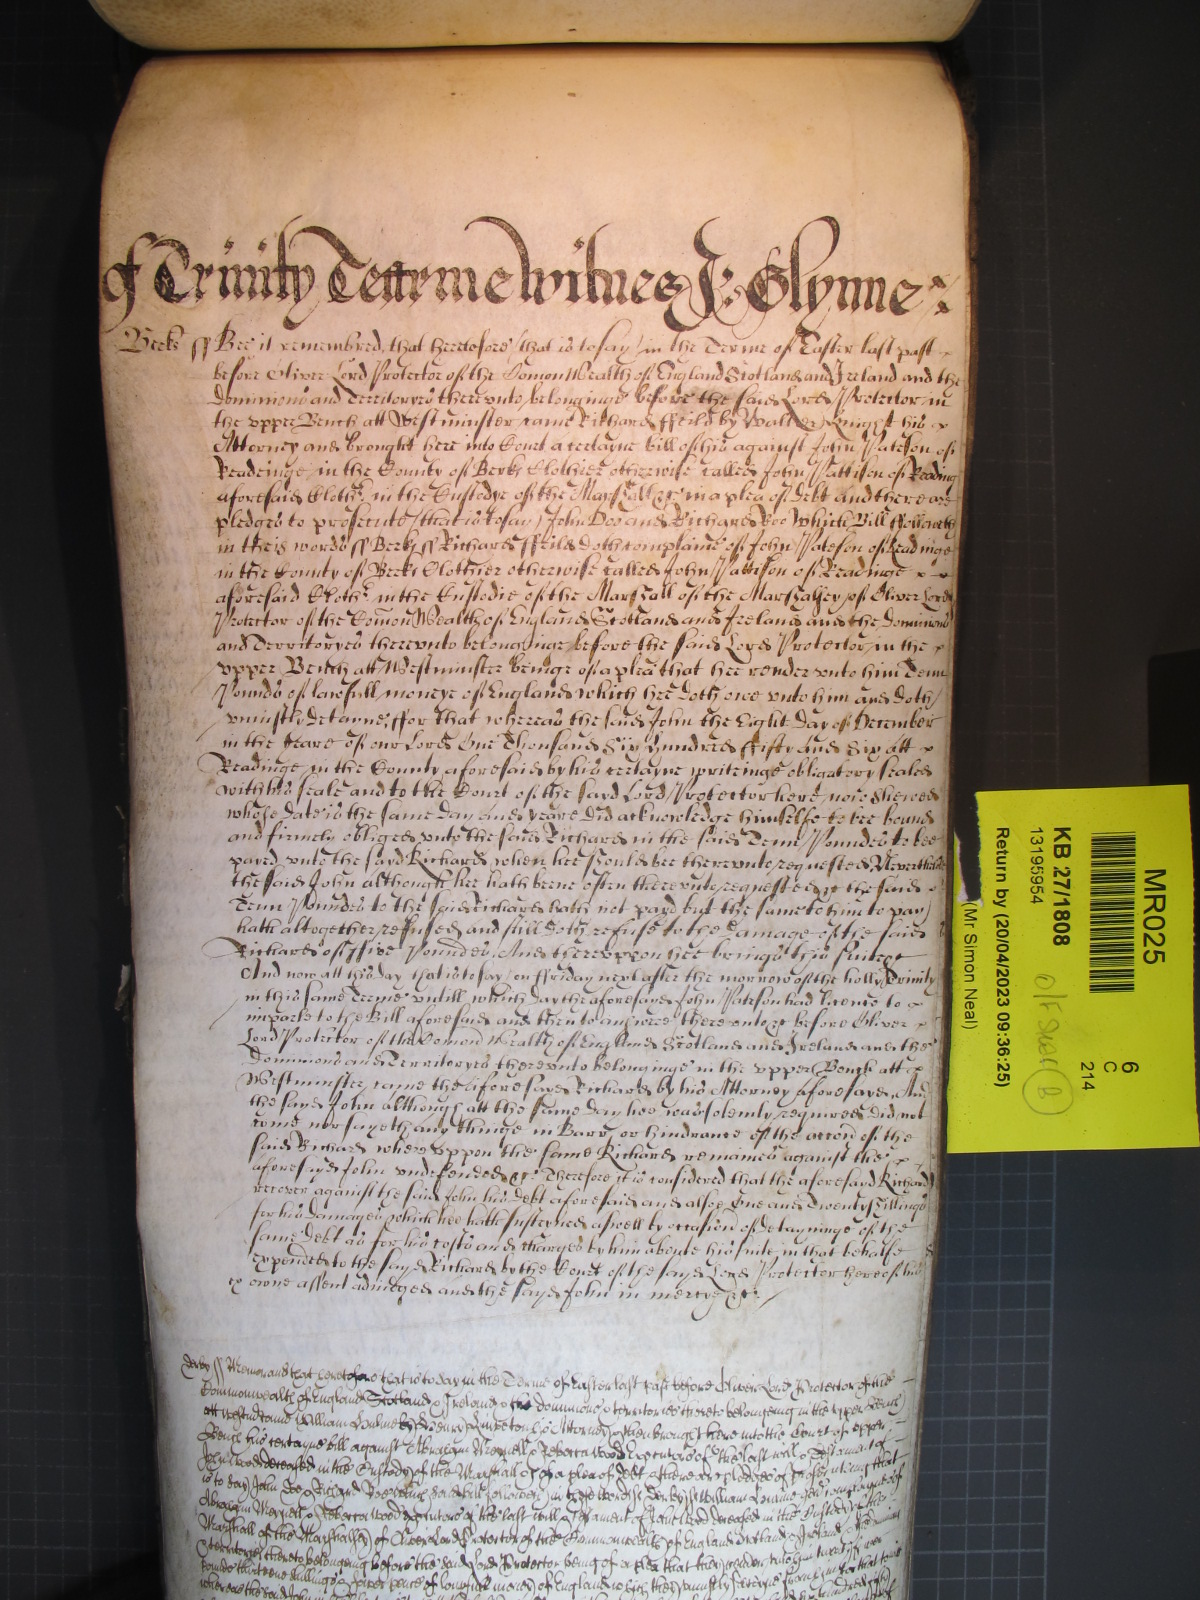 of Trinity Tearme Witnes Jo: Glynne
Berks ss Bee it remembred, that heretofore that is to say in the Terme of Easter last past
before Oliver Lord Protector of the Comon Wealth of England Scotland and Ireland and the
dominions and Territoryes thereunto belonginge before the said Lord Protector in
the upper Bench att Westminster came Richard ffeild by Walter Knight his
Attorney and brought here into Court a certayne bill of his against John Pateson of
Readeinge in the County of Berks Clothier otherwise called John Pattison of Reading
aforesaid Cloth: in the Custodye of the Marshall &c in a plea of debt and there are
pledges to prosecute that is to say John Doo and Richard Roo which Bill ffolloweth
in theis words ss Berks ss Richard ffeild doth complaine of John Pateson of Readinge
in the County of Berks Clothier otherwise called John Pattison of Readinge
aforesaid Cloth: in the Custodie of the Marshall of the Marshalsey of Oliver Lord
Protector of the Comon Wealth of England Scotland and Ireland and the dominions
and Territoryes thereunto belonginge before the said Lord Protector in the
upper Bench att Westminster beinge of a plea that hee render unto him Tenn
Pounds of lawfull moneye of England which hee doth owe unto him and doth
uniustly detayne, ffor that whereas the said John the Eight day of December
in the yeare of our Lord One Thousand Six Hundred ffifty and Six att
Readinge in the County aforesaid by his certayne writeinge obligatory sealed
with his seale and to the Court of the sayd Lord Protector here now shewed
whose date is the same day and yeare did acknowledge himselfe to bee bound
and firmely obliged unto the said Richard in the said Tenn Poundes to bee
payed unto the sayd Richard when hee should bee thereunto requested, Neverthelesse
the said John although hee hath beene often thereunto requested &c the said
Tenn Poundes to the said Richard hath not payd but the same to him to pay
hath altogether refused and still doth refuse to the damage of the said
Richard of ffive Poundes, And thereupon hee brings his suite &c
And now att this day that is to say on ffriday next after the morrow of the holly Trinity
in this same Terme untill which day the aforesayd John Pateson had licence to
imparle to the Bill aforesaid and then to answere thereunto &c before Oliver
Lord Protector of the Comon Wealth of England Scotland and Ireland and the
dominions and Territoryes thereunto belonginge in the upper Bench att
Westminster, came the aforesayd Richard by his Attorney aforesayd, And
the sayd John although att the same day hee was solemly required did not
come nor sayeth any thinge in Barr, or hindrance of the accon of the
said Richard whereuppon the same Richard remaines against the
aforesayd John undefended &c Therefore it is considered that the aforesayd Richard
recover against the said John his debt aforesaid and alsoe One and Twenty Shillings
for his damages which hee hath susteyned aswell by occasion of detayninge of the
same debt as for his costs and charges by him aboute his suite in that behalfe
expended to the sayd Richard by the Court of the sayd Lord Protector here of his
owne assent adiudged and the sayd John in mercye &c
Derby ss Memorand that heretofore that is to say in the Terme of Easter last past before Oliver Lord Protector of the
Commonwealth of England Scotland & Ireland & the dominions & territories thereto belonging in the upper Bench
att Westm came William by Henry his Attorney & then brought here into the Court of upper
Bench his certayne bill against Abraham & Rebecca Wood Executors of the last will & Testament of
John Wood deceased in the Custody of the Marshall &c of a plea of debt & there are pledges of prosecuting that
is to say John Doe & Richard Roe which bill followeth in these words Derby ss William complaynes of
Abraham & Rebecca Wood Executors of the last will & Testament of John Wood deceased in the Custody of the
Marshall of the Marshalsey of Oliver Lord Protector of the Commonwealth of England Scotland & Ireland & the dominions
& territories thereto belonging before the said Lord Protector being of a plea that they render unto him
MR025
KB 27/1808
13195954
Return by (20/04/2023 09:36:25)
(Mr Simon Neal)
6
C
214
B